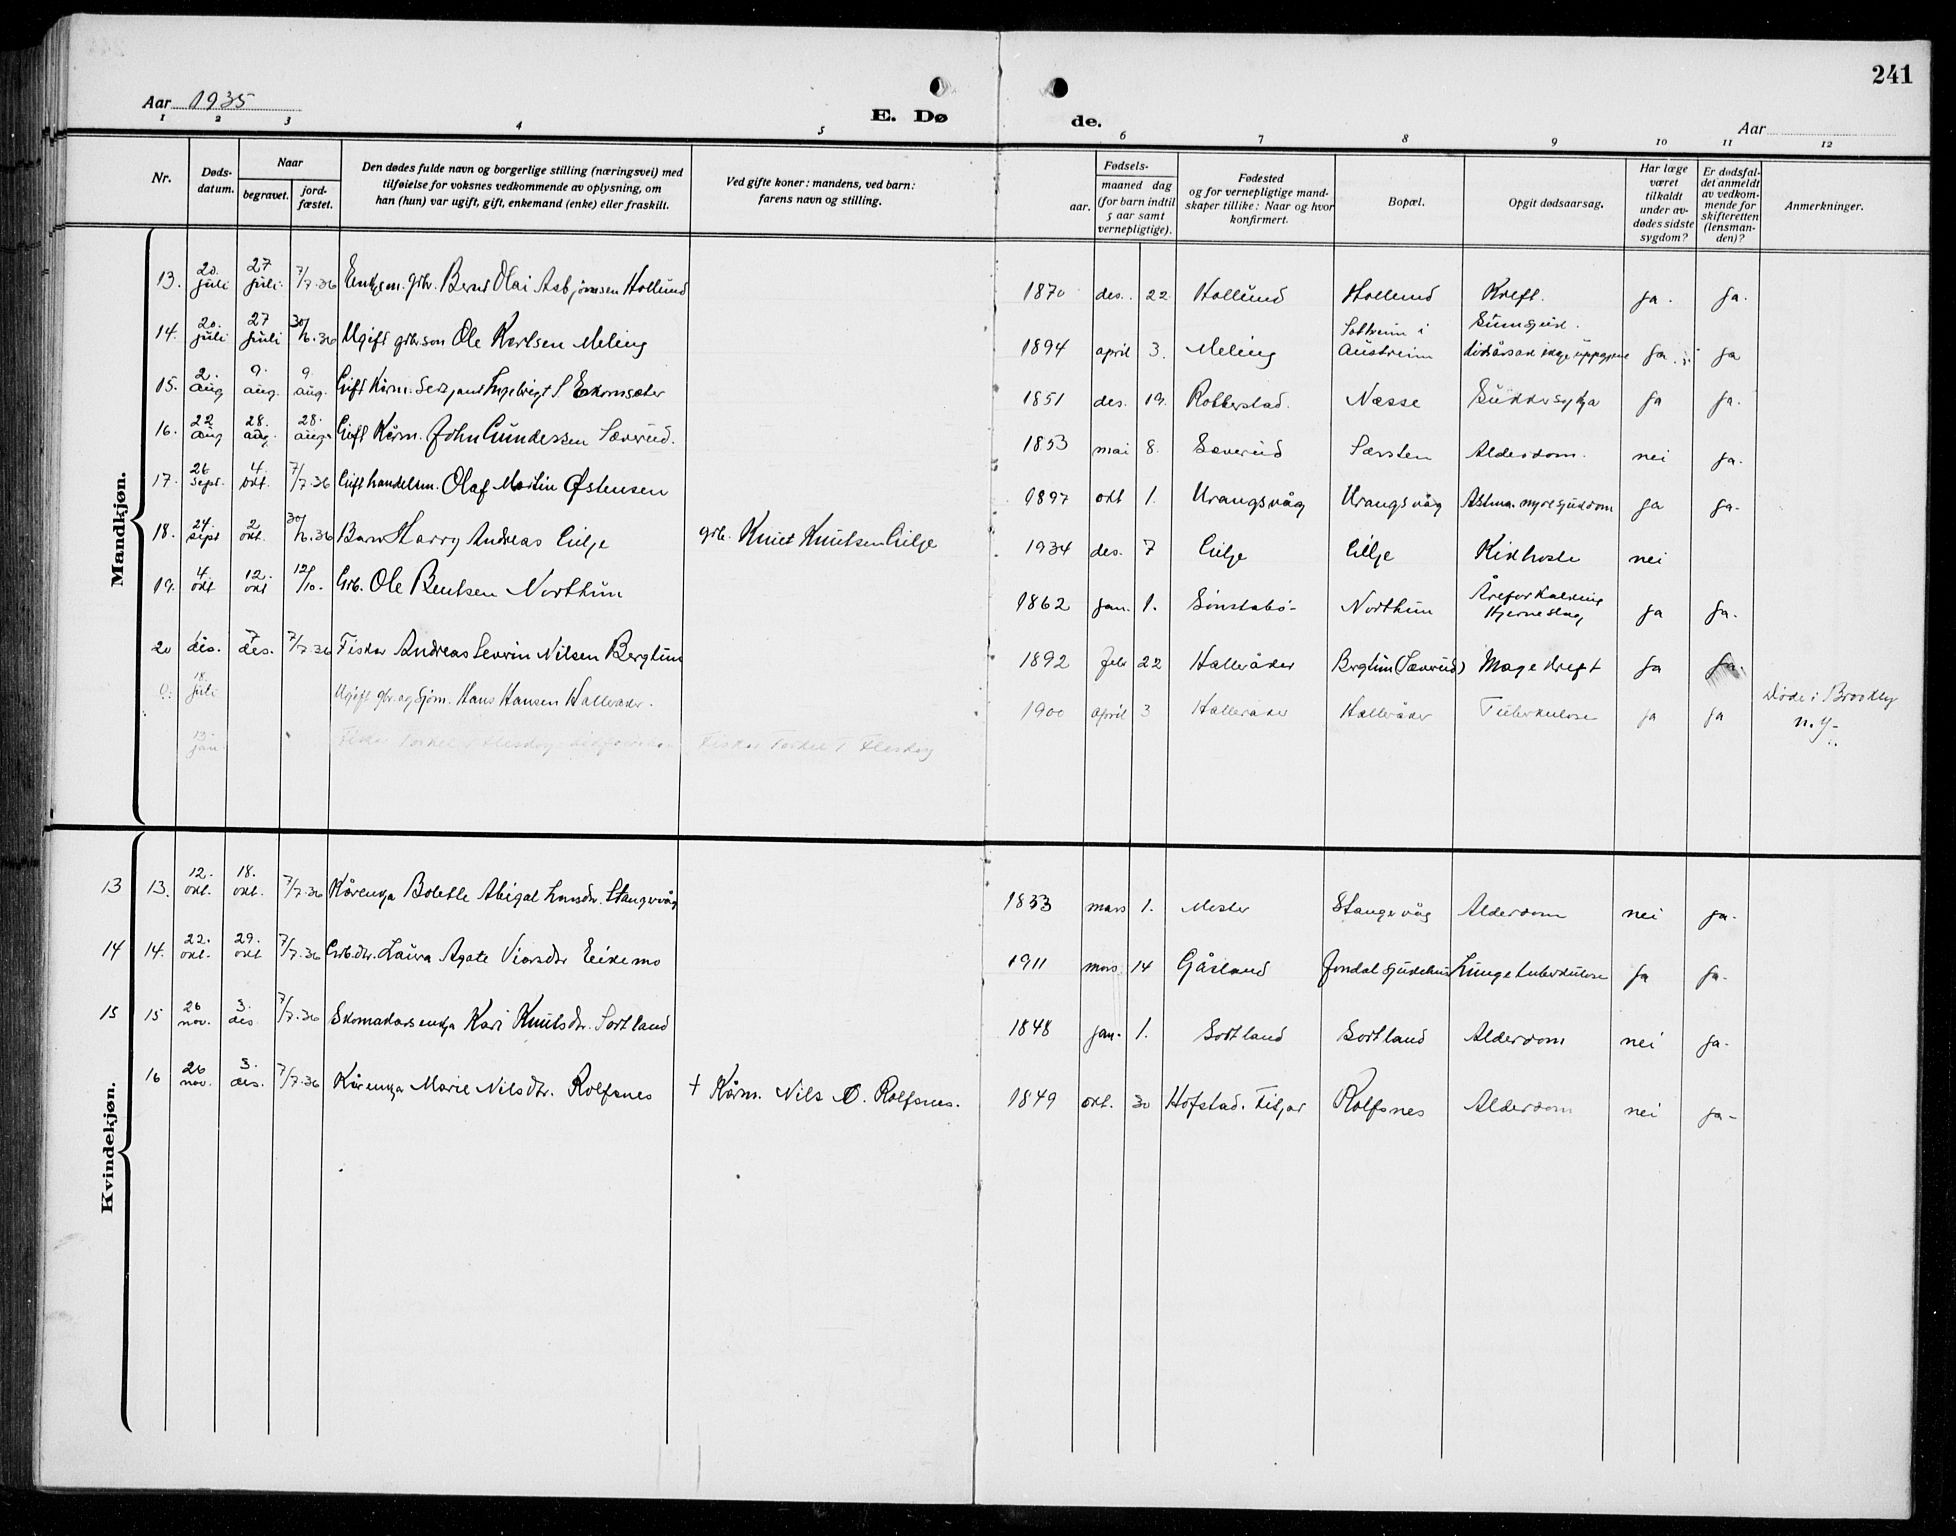 241
Aar 1935
E. Dø
de.
Aar
1 2 3 4 5 6 7 8 9 10 11 12
Nr.
Døds-
datum.
Naar
begravet.
jord-
fæstet.
Den dødes fulde navn og borgerlige stilling (næringsvei) med
tilføielse for voksnes vedkommende av oplysning, om
han (hun) var ugift, gift, enkemand (enke) eller fraskilt.
Ved gifte koner: mandens, ved barn:
farens navn og stilling.
Fødsels-
aar.
maaned dag
(for barn indtil
5 aar samt
vernepligtige).
Fødested
og for vernepligtige mand-
skaper tillike: Naar og hvor
konfirmert.
Bopæl.
Opgit dødsaarsag.
Har læge
været
tilkaldt
under av-
dødes sidste
sygdom?
Er dødsfal-
det anmeldt
av vedkom-
mende for
skifteretten
(lensman-
den)?
Anmerkninger.
Mandkjøn.
13. 20. juli 27 juli 7/7.36 Enkjem. grbr. Bernt Olai Asbjørnsen Hollund 1870 des. 22 Hollund Hollund Kreft. ja. ja.
14. 20. juli 27 juli 30/6.36 Ugift grbr.son Ole Karlsen Meling 1894 april 3. Meling i Austreim ja ja
15. 2. aug 9. aug. 9. aug. Gift Kårm. Ingebrigt S 1851 des. 19. Næsse Sukkersykja ja ja.
16. 22 aug 28. aug. 28. aug. Gift Kårm. John Gundersen Sæverud. 1853 mai 8. Sæverud Særsten Alderdom. nei ja.
17. 26 sept. 4. okt. 7/7.36 Gift handelsm. Olaf Martin Østensen 1897 okt 1. Urangsvåg Urangsvåg Astma. nyresjukdom ja ja.
18. 24. sept 2. okt. 30/6.36 Barn Harry Andreas Lilje grbr. Knut Knutsen Lilje 1934 des. 7 Lilje Lilje Kikhoste nei
19. 4. okt 12. okt 12/10. Grb. Ole Bentsen Northun 1862 jan. 1. Sønstabø Northun Åreforkalkning Hjerneslag ja ja.
20 1. des. 7. des. 7/7.36 Fiskar Andreas Severin Nilsen Berghun 1892 febr 22 Halleråker Berghun (Sæverud) Magekreft ja ja.
0. 18. juli Ugift gbr. og sjøm. Hans Hansen Halleråker. 1900 april 3 Halleråker Halleråker Tuberkulose ja ja Døde i Brooklyn
N.Y.
13. jan Fiskar Torkel T
Kvindekjøn.
13 13. 12. okt. 18. okt. 7/7.36 Kårenkja Bolette Abigal Larsdr. Stangervåg 1853 mars 1. Moster Stangervåg Alderdom nei ja.
14 14. 22. okt. 29. okt 7/7.36 Grb.dtr. Laura Agate Eikemo 1911 mars 14 Gåsland Jondal sjukehus Lungetuberkulose ja ja.
15 15 26 nov. 3. des 7/7.36 Skomakarsenkja Kari Knutsdtr. Sortland 1848 jan. 1. Sortland Sortland Alderdom nei ja.
16 26 nov. 3. des. 7/7.36 Kårenkja Marie Nilsdtr. Rolfsnes † Kårm. Nils O. Rolfsnes. 1849 okt. 30 Hofstad. Fitjar Rolfsnes Alderdom nei ja